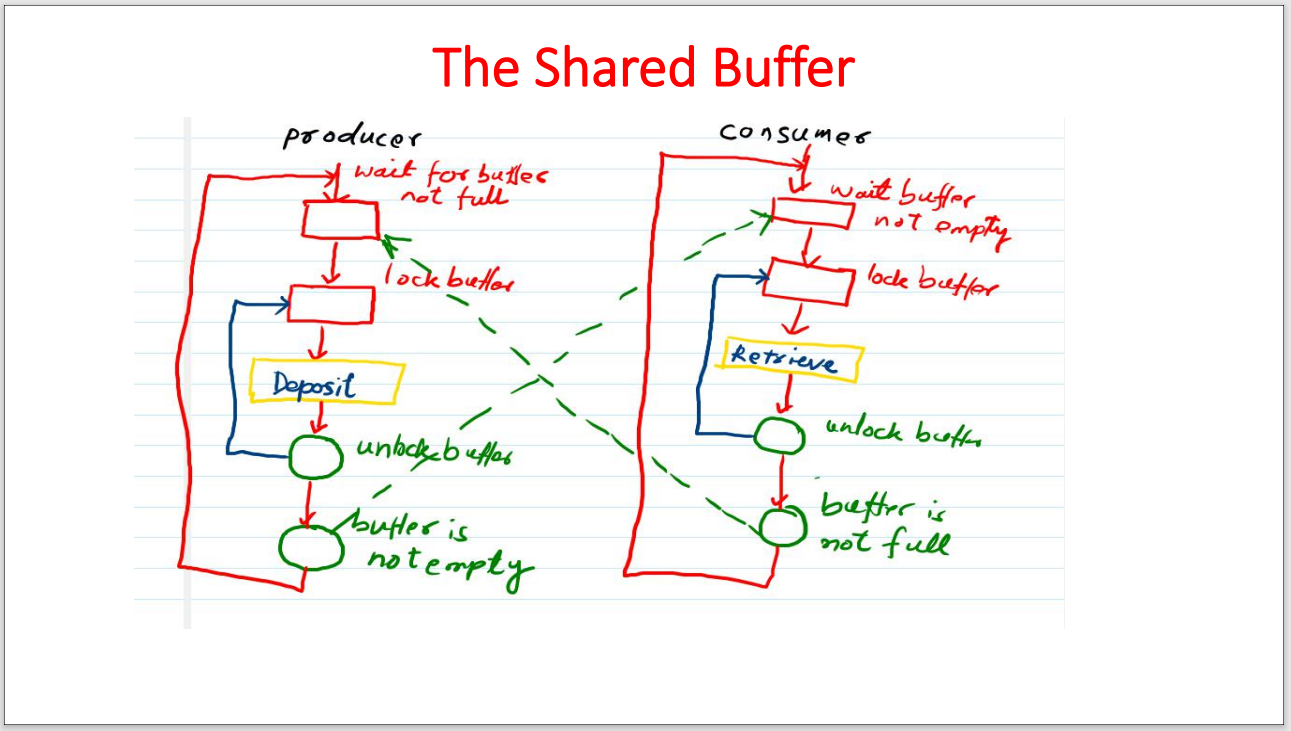 The Shared Buffer
producer
wait for buffer
not full
lock buffer
Deposit
unlock buffer
buffer is
not empty
consumer
wait buffer
not empty
lock buffer
Retrieve
unlock buffer
buffer is
not full